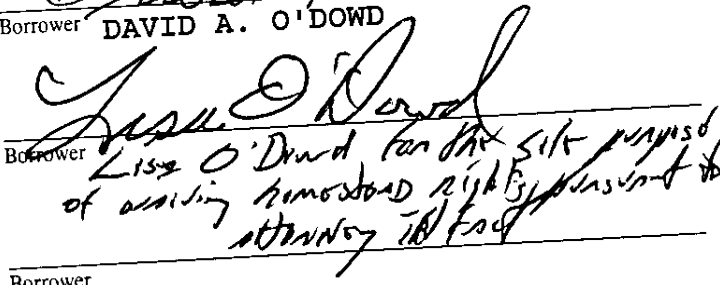 Borrower DAVID A. O'DOWD
Lisa O'Dowd
Borrower Lisa O'Dowd for the sole purpose
of waiving homestead rights, pursuant to
attorney in Fact
Borrower